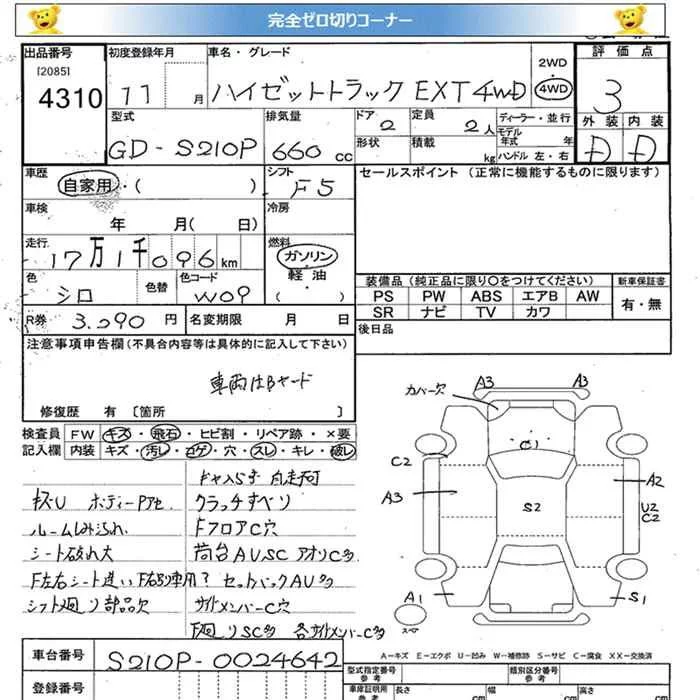 完全ゼロ切りコーナー
出品番号 初度登録年月 車名・グレード 評価点
[2085]
4310 11 月 ハイゼットトラック EXT 4WD 2WD 4WD 3
型式 排気量 ドア 定員 ディーラー・並行 外装 内装
GD-S210P 660 cc 2 2人 モデル年式 年 D D
形状 積載 kg ハンドル 左・右
車歴 シフト セールスポイント (正常に機能するものに限ります)
自家用・( ) F5
車検 冷房
年 月( 日)
走行 燃料
17万1千096 km ガソリン・軽油・( )
色 色替 色コード 装備品 (純正品に限り〇をつけてください) 新車保証書
シロ W09 PS PW ABS エアB AW 有・無
SR ナビ TV カワ
R券 3,090 円 名変期限 月 日 後日品
注意事項申告欄 (不具合内容等は具体的に記入して下さい)
車両はBヤード
修復歴 有 [箇所 ]
検査員 FW キズ・飛石・ヒビ割・リペア跡・×要
記入欄 内装 キズ・汚レ・コゲ・穴・スレ・キレ・破レ
キズU ボディーPアセ クラッチすべり
ルームしみ汚れ FフロアC穴
シート破れ大 荷台AUSC アオリC多
F左右シート違い
セットバックAU多
シフト廻り部品欠 サイドメンバーC穴
F廻りSC多 各サイドメンバーC多
カバー欠 A3 A3
C1
C2
A3 S2 A2
U2
C2
A1 S1
スペア
A-キズ E-エクボ U-凹み W-補修跡 S-サビ C-腐食 XX-交換済
車台番号 S210P-0024642 型式指定番号 参考 類別区分番号 参考
登録番号 車庫証明用 参考 長さ cm 幅 cm 高さ cm